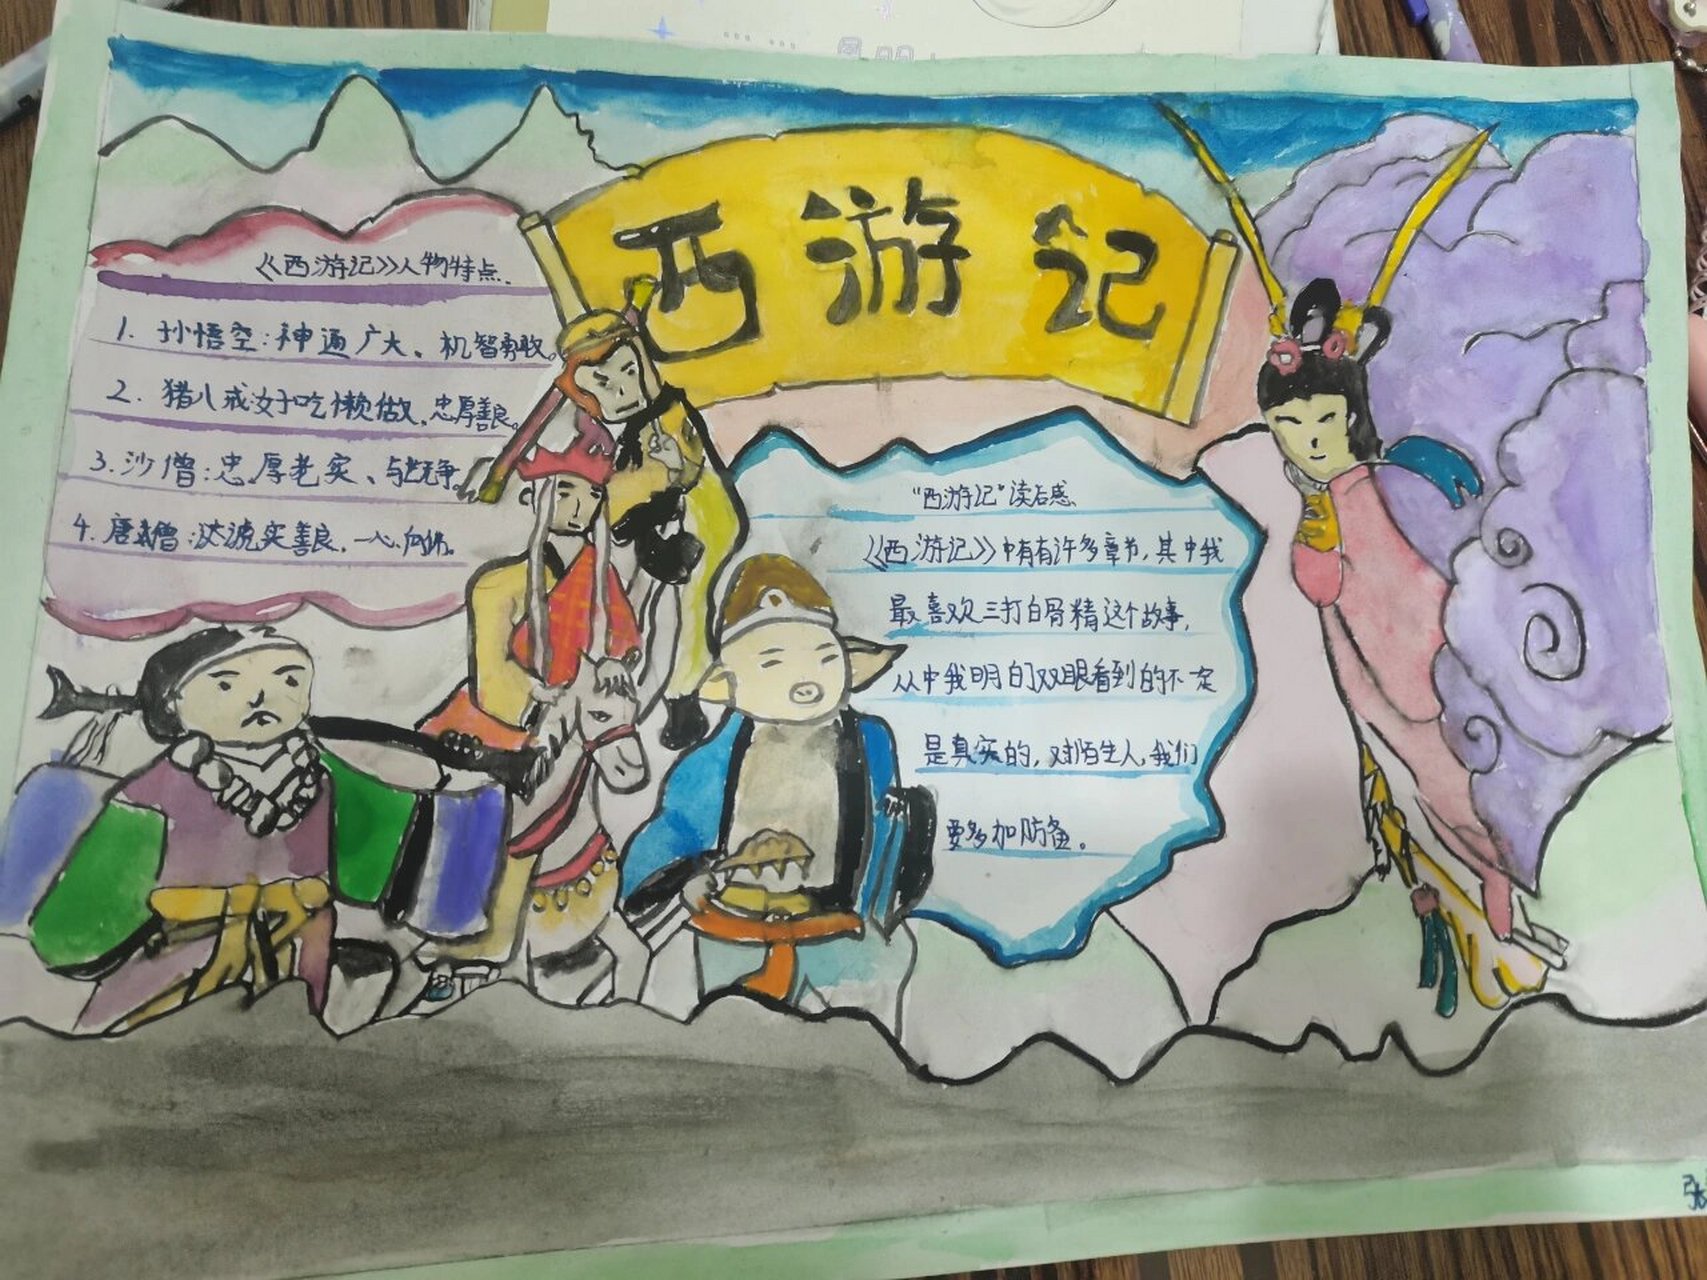 西游记
《西游记》人物特点
1. 孙悟空:神通广大、机智勇敢。
2. 猪八戒:好吃懒做、忠厚善良。
3. 沙僧:忠厚老实、与世无争。
4. 唐僧:实善良,一心向佛。
“西游记”读后感
《西游记》中有有许多章节,其中我
最喜欢三打白骨精这个故事,
从中我明白了双眼看到的不一定
是真实的,对陌生人,我们
要多加防备。
张